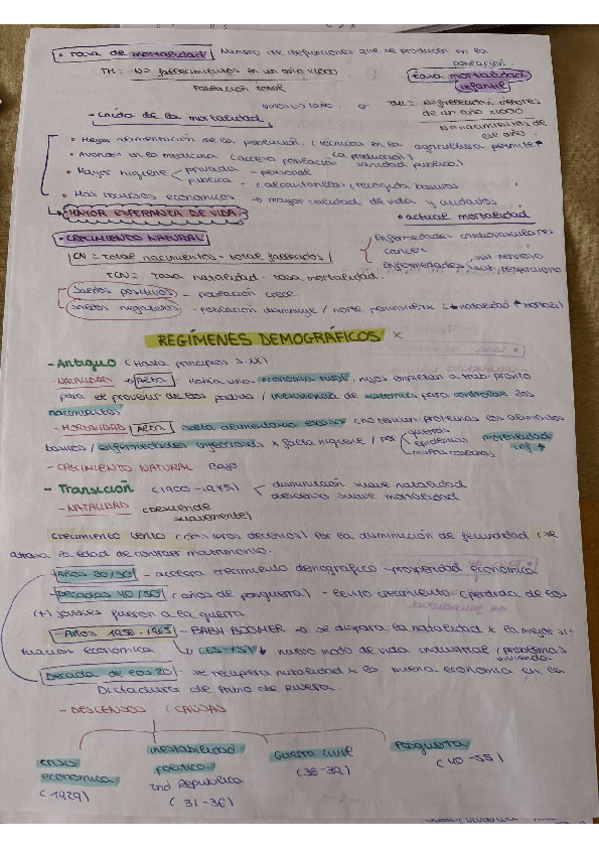 • Tasa de mortalidad Número de defunciones que se producen en la población.
TM = Nº fallecimientos en un año x1000
Población total
tasa mortalidad infantil
o TMI = Nº fallecidos menores de un año x1000
Nº nacimientos de ese año
- Caída de la mortalidad
• Mejor alimentación de la población (técnicas en la agricultura permite ↑ la producción)
• Avances en la medicina (acceso población sanidad pública)
• Mayor higiene privada - personal
pública - (alcantarillas, recogida basuras
• Más recursos económicos → mayor calidad de vida y cuidados
→ MAYOR ESPERANZA DE VIDA
• actual mortalidad
enfermedades cardiovasculares
cancer
enfermedades sist nervioso
sist. respiratorio
• CRECIMIENTO NATURAL
CN = Total nacimientos - total fallecidos
TCN = Tasa natalidad - tasa mortalidad.
Saldos positivos - población crece
Saldos negativos - población disminuye / (↓ natalidad ↑ mortali)
REGÍMENES DEMOGRÁFICOS x
- Antiguo (Hasta principios S. XX)
- NATALIDAD → Alta: Había una economía rural, hijos empiezan a trab. pronto
para el provenir de los padres / inexistencia de sistemas para controlar los
nacimientos
- MORTALIDAD / Alta / Dieta alimentaria escasa (no tenían proteínas los alimentos
básicos / enfermedades infecciosas x falta higiene / por guerras
epidemias
malas cosechas
mortalidad inf ↑
- CRECIMIENTO NATURAL Bajo
- Transición (1900 - 1975) disminución suave natalidad
descenso suave mortalidad
- NATALIDAD (desciende suavemente)
Crecimiento lento (dos 1eros decenios) Por la disminución de fecundidad (se
atrasa la edad de contraer matrimonio.
Años 20/30 - acelera crecimiento demográfico - prosperidad económica
Decadas 40/50 (años de posguerra) - lento crecimiento (pérdida de los
(+) jovenes fueron a la guerra
- Años 1956 - 1965 - BABY BOOMER → se dispara la natalidad x la mejor si-
tuación económica → (65-75) ↓ nuevo modo de vida industrial / problemas vivienda.
Decada de los 20 - se recupera natalidad x la buena economía en la
Dictadura de Primo de Rivera.
- DESCENSOS (CAUSAS)
crisis económica (1929)
inestabilidad política. 2nd República (31-36)
Guerra civil (36-39)
Posguerra (40-55)